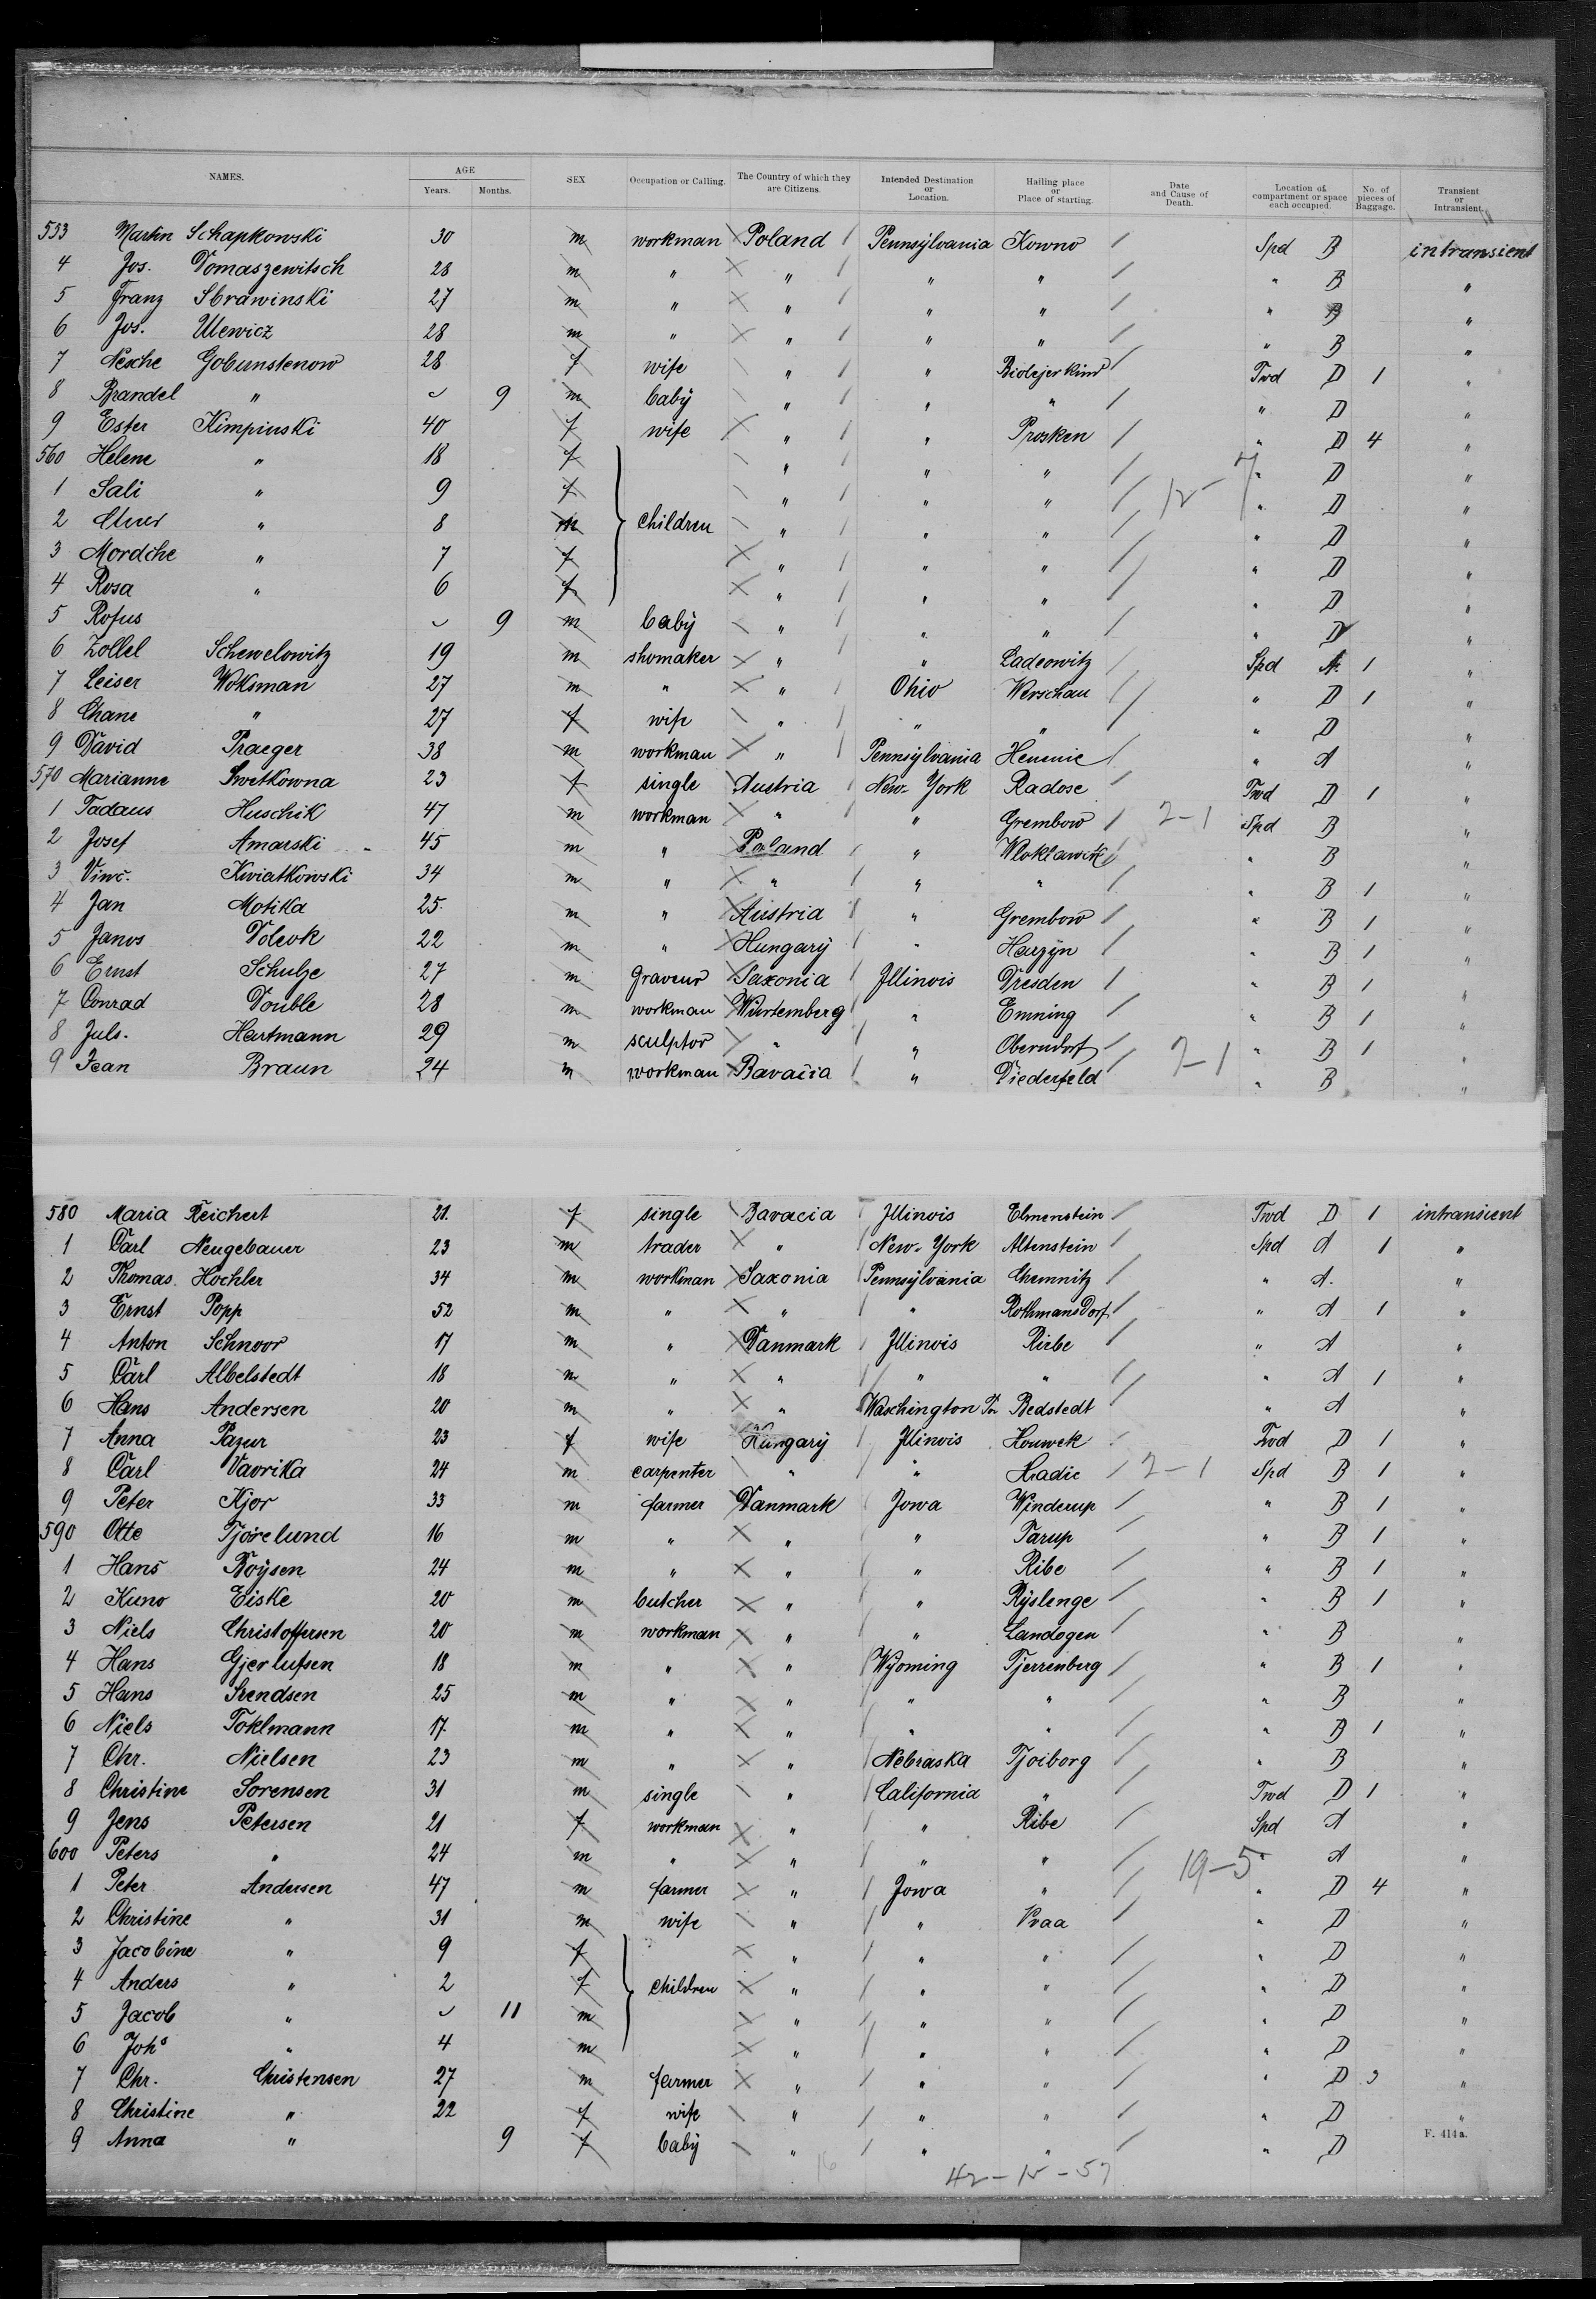 NAMES. AGE Years. Months. SEX Occupation or Calling. The Country of which they are Citizens. Intended Destination or Location. Hailing place or Place of starting. Date and Cause of Death. Location of compartment or space each occupied. No. of pieces of Baggage. Transient or Intransient.
553 Martin Schapkowski 30 m workman Poland Pennsylvania Kowno Spd B intransient
4 Jos. Domaszewitsch 28 m " " " " " B "
5 Franz Sbrawinski 27 m " " " " " B "
6 Jos. Ulewicz 28 m " " " " " B "
7 Nesche Gobunstenow 28 f wife " " Twd D 1 "
8 Brandel " 9 m baby " " " " D "
9 Ester Kimpinski 40 f wife " " Prosken " D 4 "
560 Helene " 18 f " " " " D "
1 Sali " 9 f " " " 12-7 " D "
2 " 8 m children " " " " D "
3 Mordche " 7 f " " " " D "
4 Rosa " 6 f " " " " D "
5 Rofus 9 m baby " " " " D "
6 Zollel Schewelowitz 19 m shomaker " " Ladeowitz Spd A. 1 "
7 Leiser Woksman 27 m " " Ohio Werschau " D 1 "
8 Chane " 27 f wife " " " " D "
9 David Praeger 38 m workman " Pennsylvania " A "
570 Marianne Swetkowna 23 f single Austria New-York Radose Twd D 1 "
1 Tadaus Huschik 47 m workman " " Grembow 2-1 Spd B "
2 Josef Amarski 45 m " Poland " " B "
3 Vinc. Kwiatkowski 34 m " " " " " B 1 "
4 Jan Motika 25 m " Austria " Grembow " B 1 "
5 Janos Dolcok 22 m " Hungary " " B 1 "
6 Ernst Schulze 27 m graveur Saxonia Jllinois Dresden " B 1 "
7 Conrad Double 28 m workman Würtemberg " Emning " B 1 "
8 Juls. Hartmann 29 m sculptor " " Oberndorf " B 1 "
9 Jean Braun 24 m workman Bavaria " Diederfeld 2-1 " B "
580 Maria Reichert 21 f single Bavacia Jllinois Elmenstein Twd D 1 intransient
1 Carl Neugebauer 23 m trader " New-York Altenstein Spd A 1 "
2 Thomas Hochler 34 m workman Saxonia Pennsylvania Chemnitz " A. "
3 Ernst Popp 52 m " " " RothmansDorf " A 1 "
4 Anton Schnoor 17 m " Danmark Jllinois Riebe " A "
5 Carl Albelstedt 18 m " " " " " A 1 "
6 Hans Andersen 20 m " " Waschington Bedstedt " A "
7 Anna Pazur 23 f wife Hungary Jllinois Houwek Twd D 1 "
8 Carl Vavrika 24 m carpenter " " Hradic 2-1 Spd B 1 "
9 Peter Kjor 33 m farmer Danmark Jowa Winderup " B 1 "
590 Otte Tjörelund 16 m " " " Tarup " B 1 "
1 Hans Boysen 24 m " " " Ribe " B 1 "
2 Kuno Eiske 20 m butcher " " Ryslenge " B 1 "
3 Niels Christoffersen 20 m workman " " Landogen " B "
4 Hans Gjerlufsen 18 m " " Wyoming Tjerrenberg " B 1 "
5 Hans Srendsen 25 m " " " " " B "
6 Niels Toklmann 17 m " " " " " B 1 "
7 Chr. Nielsen 23 m " " Nebraska Tjoiborg " B "
8 Christine Sorensen 31 m single " California " Twd D 1 "
9 Jens Petersen 21 f workman " " Ribe Spd A "
600 Peters " 24 m " " " " 19-5 " A "
1 Peter Andersen 47 m farmer " Jowa " " D 4 "
2 Christine " 31 m wife " " Vraa " D "
3 Jacobine " 9 f " " " " D "
4 Anders " 2 f children " " " " D "
5 Jacob " 11 m " " " " D "
6 Johs " 4 m " " " " D "
7 Chr. Christensen 27 m farmer " " " " D 3 "
8 Christine " 22 f wife " " " " D "
9 Anna " 9 f baby " " " " D
F. 414a.
16 42-15-57